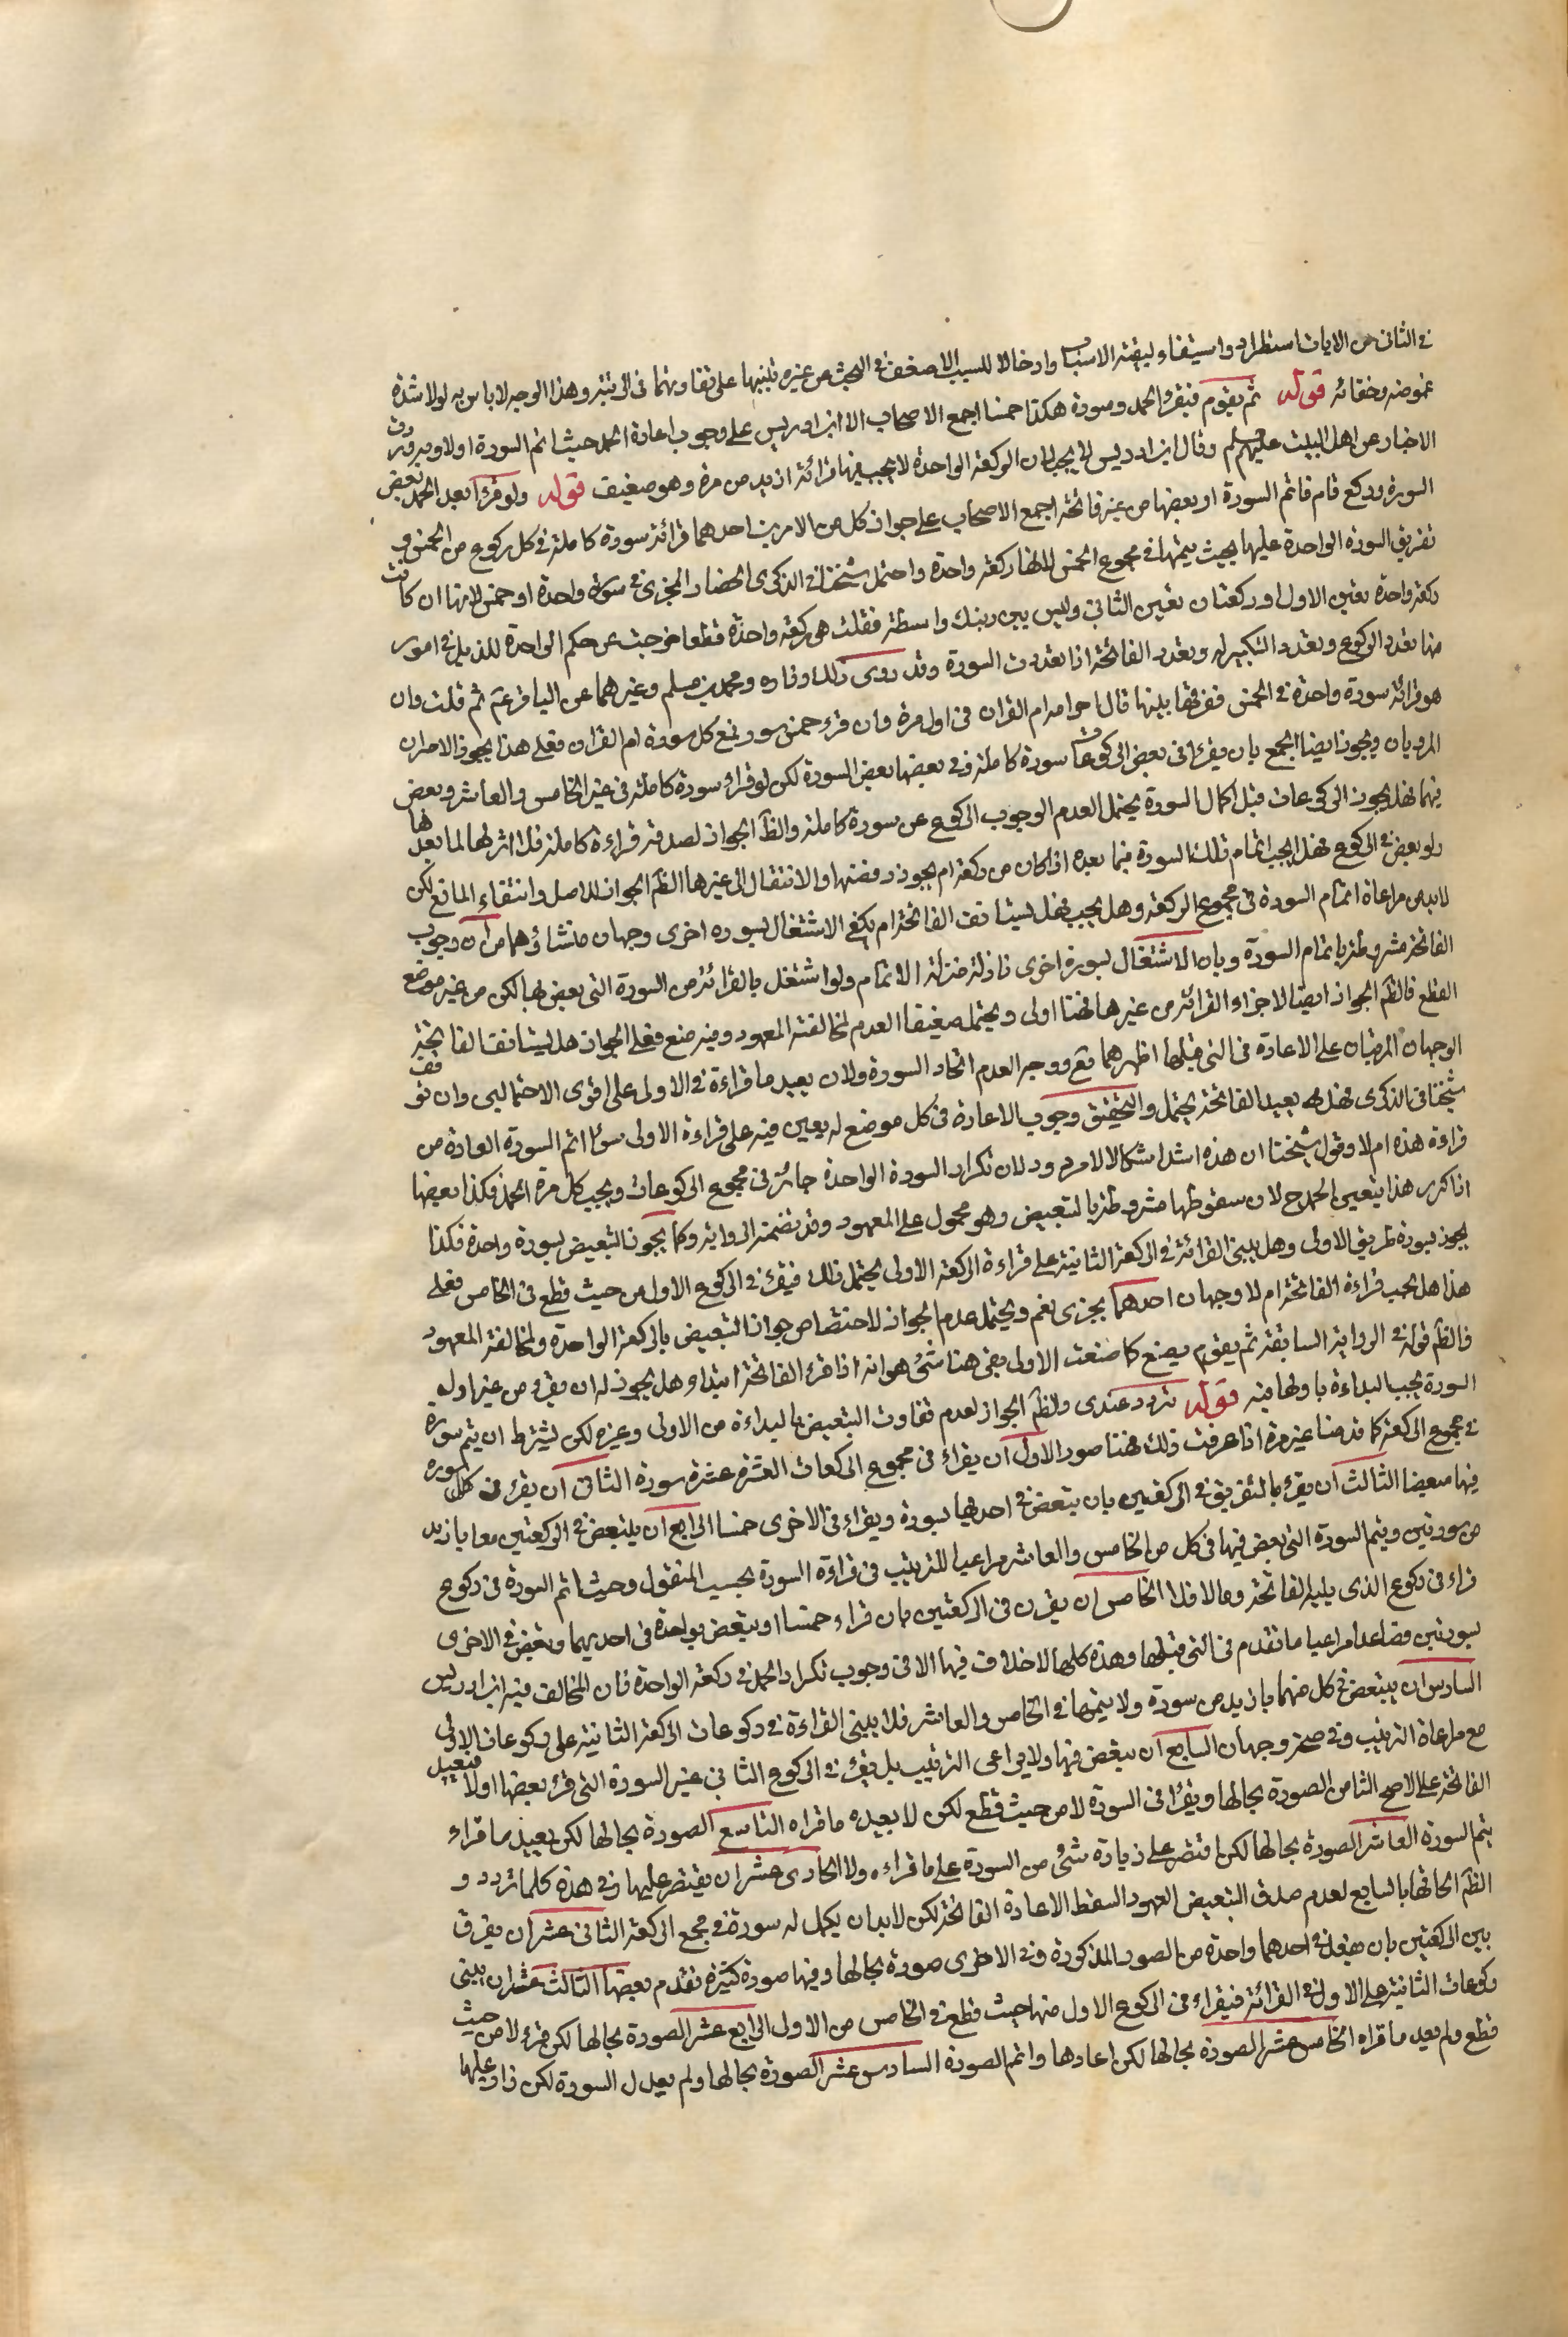 في الثاني من الايات استطرادا واستيفاء لبقية الاسباب وادخالا للسبب الاضعف في البحث من غيره تنبيها على تفاوتهما في الرتبة وهذا الوجه لا باس به لولا شدة
غموضه وخفائه قوله ثم يقوم فيقرء الحمد وسورة هكذا خمسا اجمع الاصحاب الا ابن ادريس على وجوب اعادة الحمد حيث اتم السورة اولا وبه وردت
الاخبار عن اهل البيت عليهم السلم وقال ابن ادريس لا يجب لان الركعة الواحدة لا يجب فيها قرائة ازيد من مرة وهو ضعيف قوله ولو قرأ بعد الحمد بعض
السورة وركع قام فاتم السورة او بعضها من غير فاتحة اجمع الاصحاب على جواز كل من الامرين احدهما قرائة سورة كاملة في كل ركوع من الخمس و
تفريق السورة الواحدة عليها بحيث يتمها في مجموع الخمس لانها ركعة واحدة واحتمل شيخنا في الذكرى انحصار المجزى في سورة واحدة او خمس لانها ان كانت
ركعة واحدة تعين الاول او ركعتان تعين الثاني وليس بين ذينك واسطة فقلت هى ركعة واحدة قطعا خرجت عن حكم الواحدة للدليل في امور
منها تعدد الركوع وتعدد التكبير له وتعدد الفاتحة اذا تعددت السورة وقد روى ذلك زراره ومحمد بن مسلم وغيرهما عن الباقر عم ثم قلت وان
هو قرائة سورة واحدة في الخمس ففرقها بينها قال اجزأه ام القران في اول مرة وان قرء خمس سور فمع كل سورة ام القران فعلى هذا يجوز الامران
المرويان ويجوز ايضا الجمع بان يقرأ في بعض الركوعات سورة كاملة وفى بعضها بعض السورة لكن لو قراء سورة كاملة في غير الخامس والعاشر وبعض
فيهما فهل يجوز الركوعات قبل اكمال السورة يحتمل العدم الوجوب الركوع عن سورة كاملة والظ الجواز لصدق قراءة كاملة فلا اثر لها لما بعدها
ولو بعض في الركوع فهل يجب اتمام تلك السورة فيما بعده اذا كان من ركعة ام يجوز رفضها والانتقال الى غيرها الظ الجواز للاصل وانتفاء المانع لكن
لا بد من مراعاة اتمام السورة في مجموع الركعة وهل يجب فهل يستانف الفاتحة ام يكفى الاشتغال بسوره اخرى وجهان منشاؤهما من ان وجوب
الفاتحة مشروطة باتمام السورة وبان الاشتغال بسورة اخرى نازلة منزلة الاتمام ولو اشتغل بالقرائة من السورة التى بعض بها لكن من غير موضع
القطع فالظ الجواز ايضا لاجزاء القرائة من غيرها فهنا اولى ويحتمل ضعيفا العدم لمخالفته المعهود وفيه منع فعلى الجواز هل يستانف الفاتحة
الوجهان المرتبان على الاعادة في التى قبلها اظهرهما نعم ووجه العدم اتحاد السورة ولان يعيد ما قراءة في الاولى على اقوى الاحتمالين وان توقف
شيخنا في الذكرى فهل يعيد الفاتحة يحتمل والتحقيق وجوب الاعادة في كل موضع له يعين فيه على قراءة الاولى سواء اتم السورة العادة من
قراءة هذه ام لا وقول شيخنا ان هذه اشد اشكالا لا مردود لان تكرار السورة الواحدة جائز في مجموع الركوعات ويجب كل مرة الحمد فكذا بعضها
اذا كرر هذا يتعين الحمد ح لان سقوطها مشروطة بالتبعيض وهو محمول على المعهود وقد تضمنه الرواية وكما يجوز التبعيض بسورة واحدة فكذا
يجوز بسورة بطريق الاولى وهل يبنى القرائة في الركعة الثانية على قراءة الركعة الاولى يحتمل ذلك فيقرء في الركوع الاول من حيث قطع في الخامس فعلى
هذا هل يجب قراءة الفاتحة ام لا وجهان احدهما يجزى نعم ويحتمل عدم الجواز لاختصاص جواز التبعيض بالركعة الواحدة ولمخالفة المعهود
فالظ قوله في الرواية السابقة ثم يقوم يصنع كما صنعت الاولى بقى هنا شئ هو انه اذا قرء الفاتحة ابتداء هل يجوز له ان يقرء من غير اوله
السورة يجب البداءة باولها فيه قوله تردد عندى والظ الجواز لعدم تفاوت التبعيض بالبداءة من الاولى وغيره لكن يشترط ان يتم سورة
في مجموع الركعة كما قدمنا غير مرة اذا عرفت ذلك فهنا صور الاول ان يقراء في مجموع الركعات العشرة عشرة سورة الثاني ان يقرء في كل سوره
فيها مبعضا الثالث ان يقرء بالتفريق في الركعتين بان يبتعض في احديهما بسورة ويقراء في الاخرى خمسا الرابع ان يتبعض في الركعتين معا بازيد
من سورتين ويتم السورة التى بعض فيها في كل من الخامس والعاشر مراعيا للترتيب في قراءة السورة بحسب المنقول وحيث اتم السورة في ركوع
قراء في ركوع الذى يليه الفاتحة وما لا فلا الخامس ان يفرق في الركعتين بان قراء خمسا او يبتعض بواحدة في احديهما وبعض في الاخرى
بسورتين فصاعدا مراعيا ما تقدم في التى قبلها وهذه كلها لاخلاف فيها الا في وجوب تكرار الحمد في ركعة الواحدة فان المخالف فيه ابن ادريس
السادس ان يبتعض في كل منهما بازيد من سورة ولا يتمها في الخامس والعاشر فلا يبنى القراءة في ركوعات الركعة الثانية على ركوعات الاولى
مع مراعاة الترتيب وفي صحته وجهان السابع ان يبعض فيها ولا يراعى الترتيب بل يقرء في الركوع الثانى غير السورة التى قرء بعضها اولا فيعيد
الفاتحة على الاصح الثامن الصورة بحالها ويقرأ في السورة لا من حيث قطع لكن لا يعيده ما قراه التاسع الصورة بحالها لكن يعيد ما قراء
يتم السورة العاشر الصورة بحالها لكن اقتصر على زيادة شئ من السورة على ما قراءه ولا الحادى عشر ان يقتصر عليها وفي هذه كلما تردد و
الظ الحاقها بالسابع لعدم صدق التبعيض المعهود السقط الاعادة الفاتحة لكن لا بد ان يكمل له سورة في مجمع الركعة الثانى عشر ان يفرق
بين الركعتين بان يفعل في احدهما واحدة من الصور المذكورة وفى الاخرى صورة بحالها وفيها صورة كثيرة تقدم بعضها الثالث عشر ان يبنى
ركوعات الثانية على الاولى في القرائة فيقراء في الركوع الاول منها حيث قطع في الخامس من الاول الرابع عشر الصورة بحالها لكن قرء لا من حيث
قطع ولم يعيد ما قراه الخامس عشر الصورة بحالها لكن اعادها واتم الصورة السادس عشر الصورة بحالها ولم يعدل السورة لكن زاد عليها